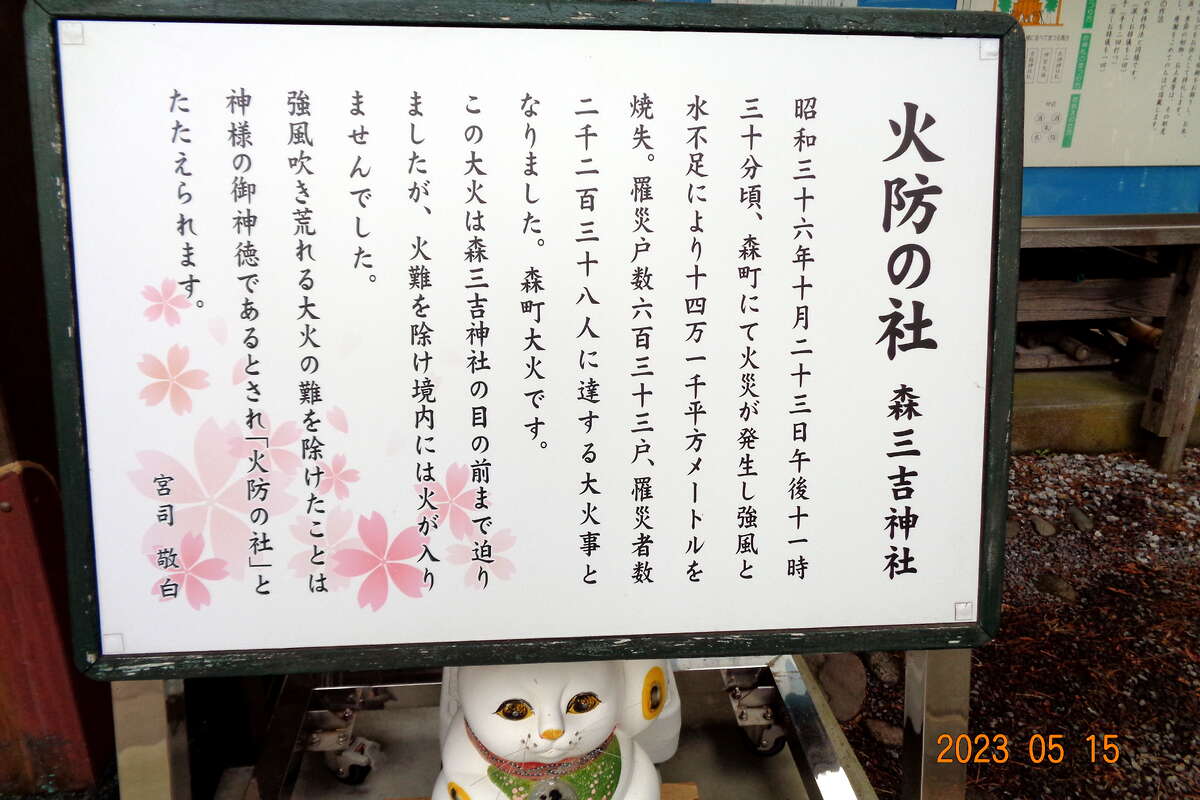 火防の社 森三吉神社
昭和三十六年十月二十三日午後十一時
三十分頃、森町にて火災が発生し強風と
水不足により十四万一千平方メートルを
焼失。罹災戸数六百三十三戸、罹災者数
二千二百三十八人に達する大火事と
なりました。森町大火です。
この大火は森三吉神社の目の前まで迫り
ましたが、火難を除け境内には火が入り
ませんでした。
強風吹き荒れる大火の難を除けたことは
神様の御神徳であるとされ「火防の社」と
たたえられます。
宮司 敬白
2023 05 15